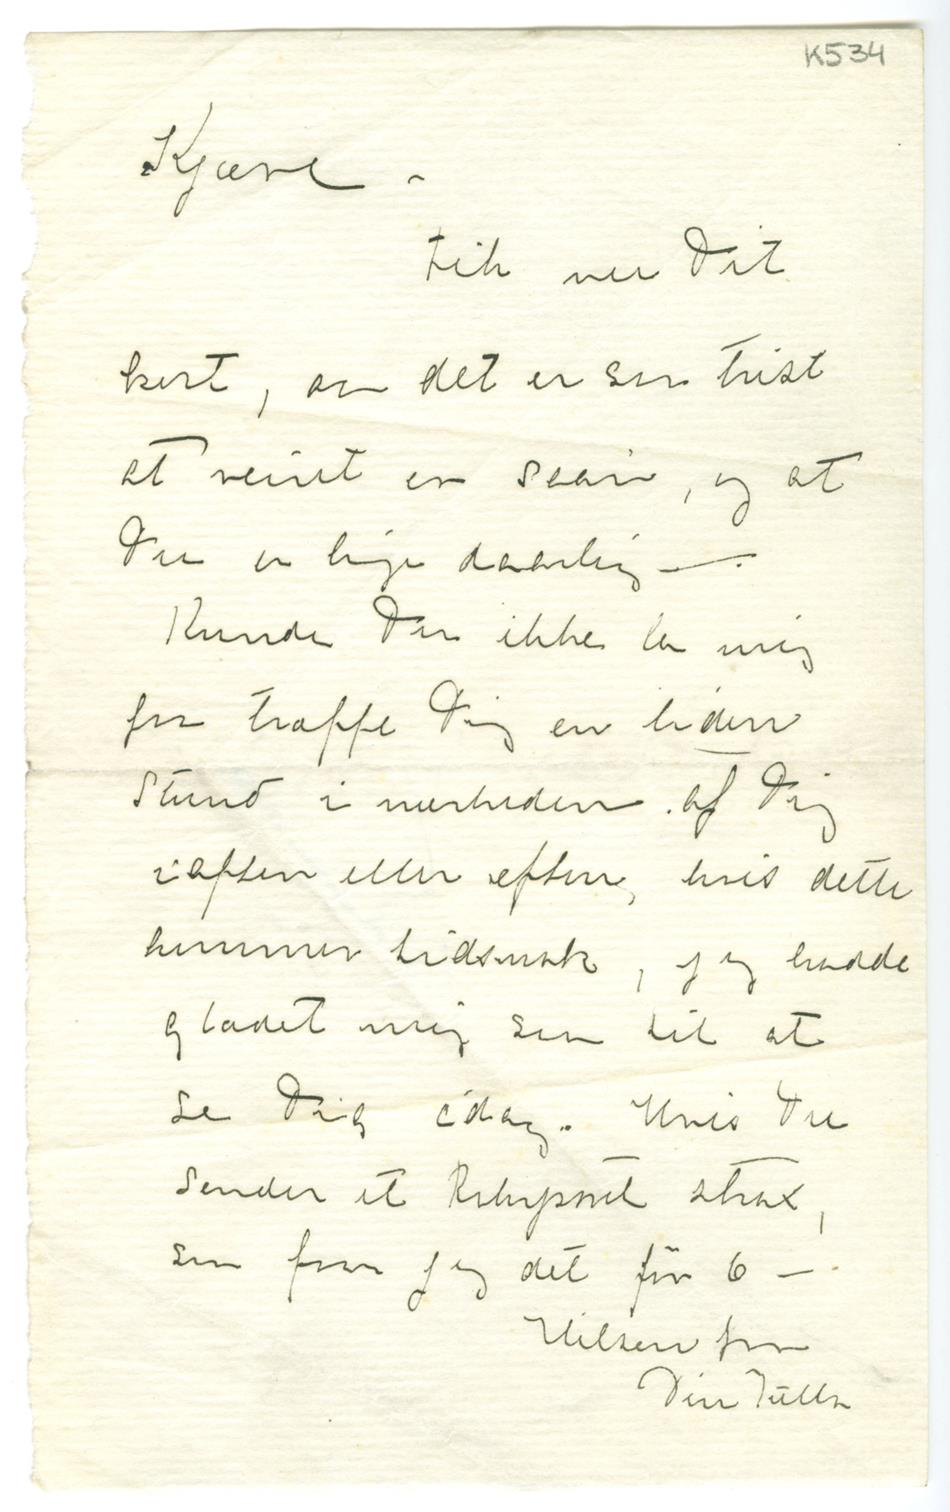 K534
Kjære –
Fik nu Dit
kort, aa det er saa trist
at veiret er saan, og at
Du er lige daarlig –.
Kunde Du ikke la mig
faa træffe Dig en liden
Stund i nærheden af Dig
iaften eller efterm, hvis dette
kommer tidsnok, jeg hadde
glædet mig saa til at
se Dig idag. Hvis Du
sender et Rohrpost strax,
saa faar jeg det før 6 –
Hilsen fra
Din Tulla